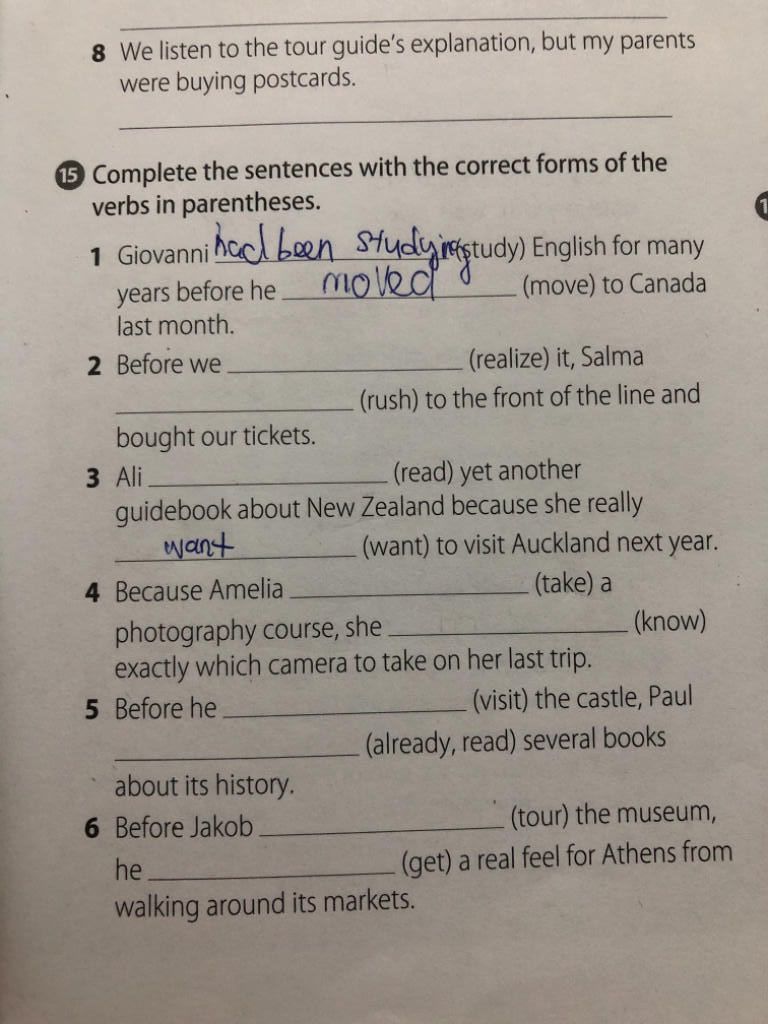 8 We listen to the tour guide's explanation, but my parents
were buying postcards.
15 Complete the sentences with the correct forms of the
verbs in parentheses.
1 Giovanni had been studying (study) English for many
years before he moved (move) to Canada
last month.
2 Before we ____ (realize) it, Salma
____ (rush) to the front of the line and
bought our tickets.
3 Ali ____ (read) yet another
guidebook about New Zealand because she really
want (want) to visit Auckland next year.
4 Because Amelia ____ (take) a
photography course, she ____ (know)
exactly which camera to take on her last trip.
5 Before he ____ (visit) the castle, Paul
____ (already, read) several books
about its history.
6 Before Jakob ____ (tour) the museum,
he ____ (get) a real feel for Athens from
walking around its markets.